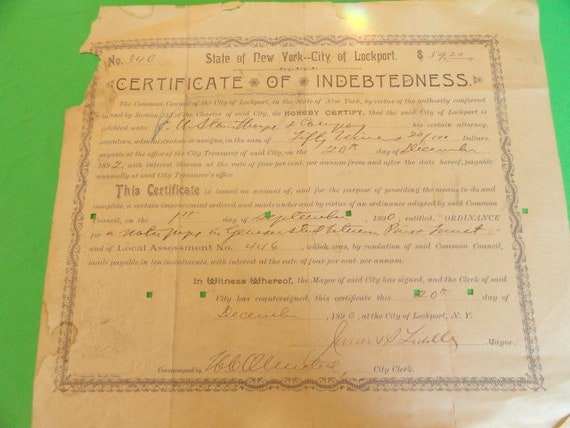 No. 340 State of New York--City of Lockport. $ 59.20
CERTIFICATE OF INDEBTEDNESS.
The Common Council of the City of Lockport, in the State of New York, by virtue of the authority conferred
by Section of the Charter of said City, do HEREBY CERTIFY, that the said City of Lockport is
indebted unto & Company his certain attorney,
executors, administrators or assigns, in the sum of Fifty 20/100 Dollars,
payable at the office of the City Treasurer of said City, on the 20th day of December
1892 with interest thereon at the rate of four per cent. per annum from and after the date hereof, payable
annually at said City Treasurer's office.
This Certificate is issued on account of, and for the purpose of providing the means to do and
complete a certain improvement ordered and made under and by virtue of an ordinance adopted by said Common
Council, on the 1st day of September 1890, entitled, "ORDINANCE
for a water pipe in Genesee Street between Street"
and of Local Assessment No. 446 which was, by resolution of said Common Council,
made payable in ten instalments with interest at the rate of four per cent. per annum.
In Witness Whereof, the Mayor of said City has signed, and the Clerk of said
City has countersigned, this certificate this 20th day of
December 1890, at the City of Lockport, N. Y.
James Mayor.
Countersigned by City Clerk.